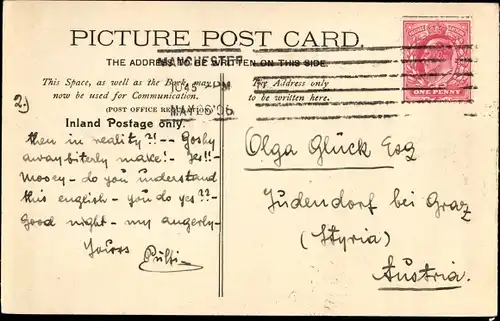 PICTURE POST CARD.
THE ADDRESS TO BE WRITTEN ON THIS SIDE.
MANCHESTER
10 45 PM
MAY 26 06
This Space, as well as the Back, may
now be used for Communication.
(POST OFFICE
Inland Postage only.
The Address only
to be written here.
ONE PENNY
2)
then in reality?!-- Goshy
away biterly make! - Yes!!-
Mooey - do you understand
this english - you do yes??-
Good night - my angerly-
Yours
Pülti-
Olga Glück Esq
Judendorf bei Graz
(Styria)
Austria.